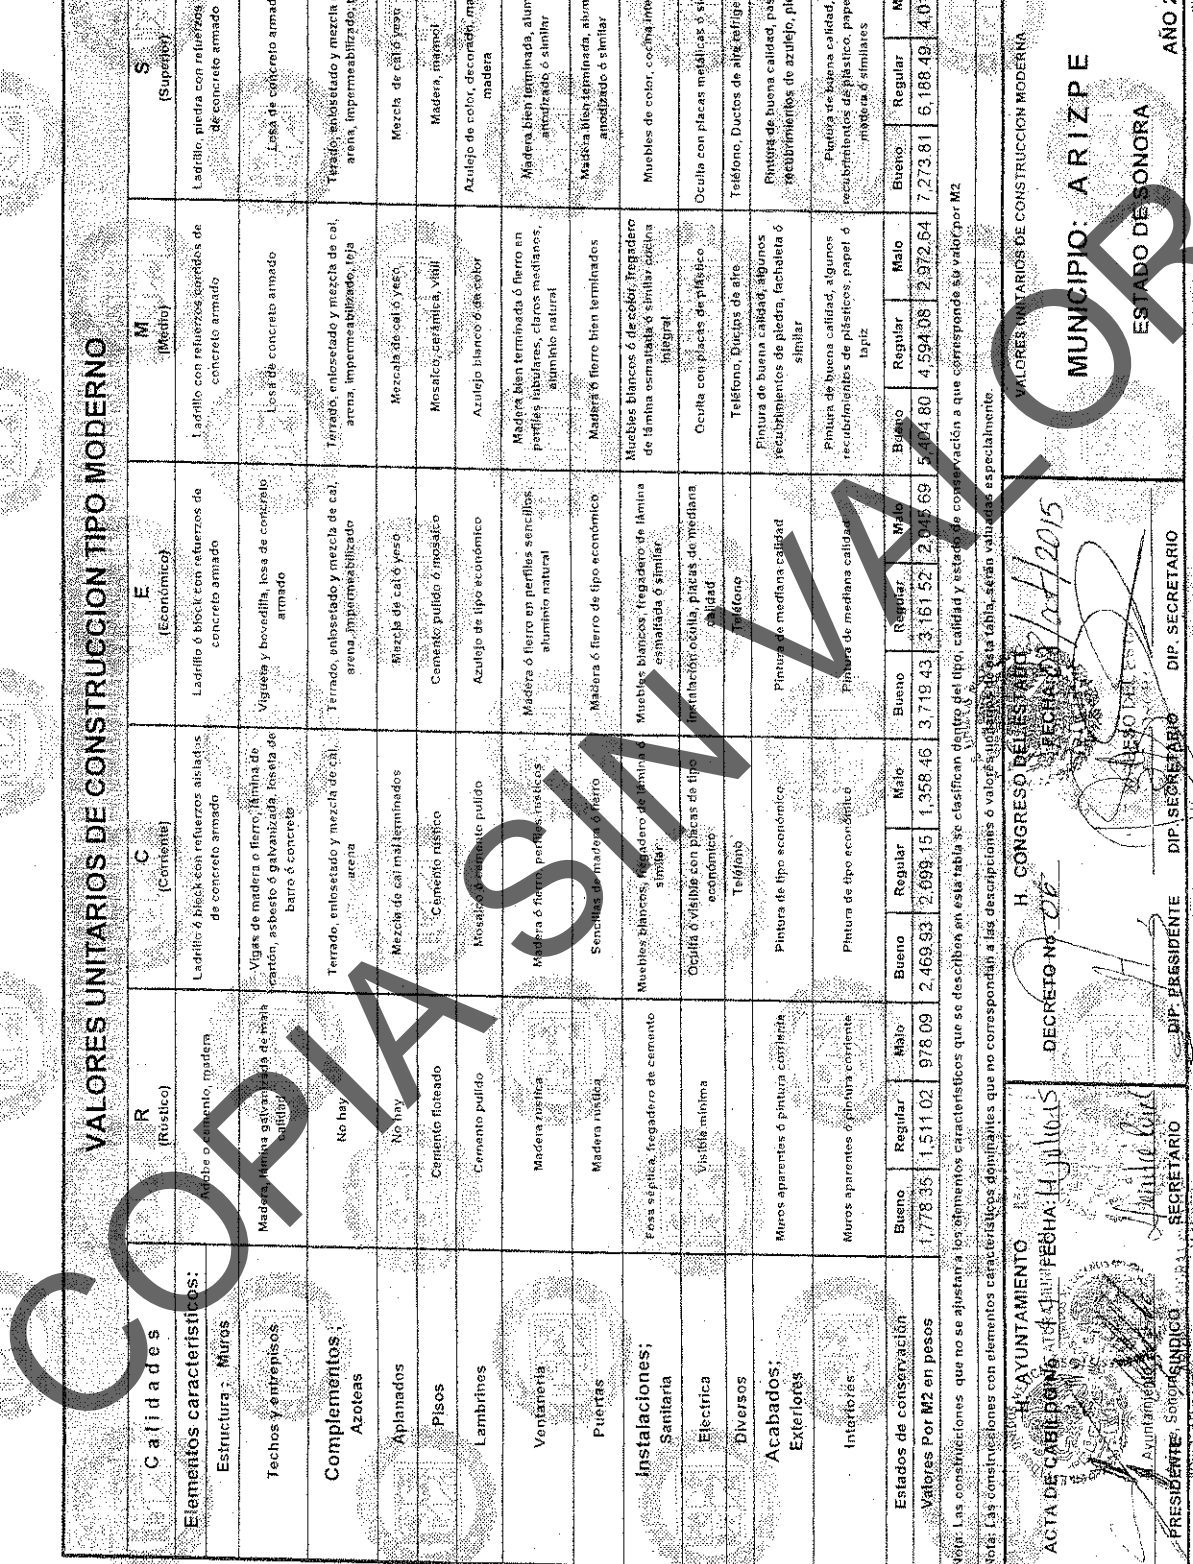 VALORES UNITARIOS DE CONSTRUCCION TIPO MODERNO
Calidades
R
(Rústico)
C
(Corriente)
E
(Económico)
M
(Médio)
S
(Superior)
Elementos característicos:
Estructura ; Muros
Adobe o cemento, madera
Ladrillo ó block con refuerzos aislados
de concreto armado
Ladrillo ó block con refuerzos de
concreto armado
Ladrillo con refuerzos corridos de
concreto armado
Ladrillo, piedra con refuerzos
de concreto armado
Techos y entrepisos
Madera, lámina galvanizada de mala
calidad
Vigas de madera o fierro, lámina de
cartón, asbesto ó galvanizada, loseta de
barro ó concreto
Vigueta y bovedilla, losa de concreto
armado
Losa de concreto armado
Losa de concreto armad
Complementos ;
Azoteas
No hay
Terrado, enlosetado y mezcla de cal,
arena
Terrado, enlosetado y mezcla de cal,
arena, impermeabilizado
Terrado, enlosetado y mezcla de cal,
arena, impermeabilizado, teja
Terrado, enlosetado y mezcla
arena, impermeabilizado, t
Aplanados
No hay
Mezcla de cal mal terminados
Mezcla de cal ó yeso
Mezcala de cal ó yeso
Mezcla de cal ó yeso
Pisos
Cemento floteado
Cemento rústico
Cemento pulido ó mosaico
Mosaico, cerámica, vinil
Madera, marmol
Lambrines
Cemento pulido
Mosaico ó cemento pulido
Azulejo de tipo económico
Azulejo blanco ó de color
Azulejo de color, decorado, ma
madera
Ventanería
Madera rústica
Madera ó fierro, perfiles rústicos
Madera ó fierro en perfiles sencillos,
aluminio natural
Madera bien terminada ó fierro en
perfiles tabulares, claros medianos,
aluminio natural
Madera bien terminada, alum
anodizado ó similar
Puertas
Madera rústica
Sencillas de madera ó fierro
Madera ó fierro de tipo económico
Madera ó fierro bien terminados
Madera bien terminada, alum
anodizado ó similar
Instalaciones;
Sanitaria
Fosa séptica, fregadero de cemento
Muebles blancos, fregadero de lámina ó
similar
Muebles blancos, fregadero de lámina
esmaltada ó similar
Muebles blancos ó de color, fregadero
de lámina esmaltada ó similar cocina
integral
Muebles de color, cocina inte
Electrica
Visible mínima
Oculta ó visible con placas de tipo
económico
Instalación oculta, placas de mediana
calidad
Oculta con placas de plástico
Oculta con placas metálicas ó si
Diversos
Teléfono
Teléfono
Teléfono, Ductos de aire
Teléfono, Ductos de aire refrige
Acabados;
Exteriores
Muros aparentes ó pintura corriente
Pintura de tipo económico
Pintura de mediana calidad
Pintura de buena calidad, algunos
recubrimientos de piedra, fachaleta ó
similar
Pintura de buena calidad, pas
recubrimientos de azulejo, pie
Interiores
Muros aparentes ó pintura corriente
Pintura de tipo económico
Pintura de mediana calidad
Pintura de buena calidad, algunos
recubrimientos de plásticos, papel ó
tapiz
Pintura de buena calidad,
recubrimientos de plástico, pape
madera ó similares
Estados de conservación Bueno Regular Malo Bueno Regular Malo Bueno Regular Malo Bueno Regular Malo Bueno Regular M
Valores Por M2 en pesos 1,778.35 1,511.02 978.09 2,469.93 2,099.15 1,358.46 3,719.43 3,161.52 2,045.69 5,404.80 4,594.08 2,972.64 7,273.81 6,188.49 4,0
Nota: Las construcciones que no se ajustan a los elementos característicos que se describen en esta tabla se clasifican dentro del tipo, calidad y estado de conservación a que corresponde su valor por M2
Nota: Las construcciones con elementos característicos dominantes que no correspondan a las descripciones ó valores unitarios de esta tabla, serán valuadas especialmente.
H. AYUNTAMIENTO
ACTA DE CABILDO No. FECHA:
PRESIDENTE SINDICO SECRETARIO
H. CONGRESO DEL ESTADO
DECRETO No. 06 FECHA
DIP. PRESIDENTE DIP. SECRETARIO DIP. SECRETARIO
VALORES UNITARIOS DE CONSTRUCCION MODERNA
MUNICIPIO: ARIZPE
ESTADO DE SONORA
AÑO 2
COPIA SIN VALOR